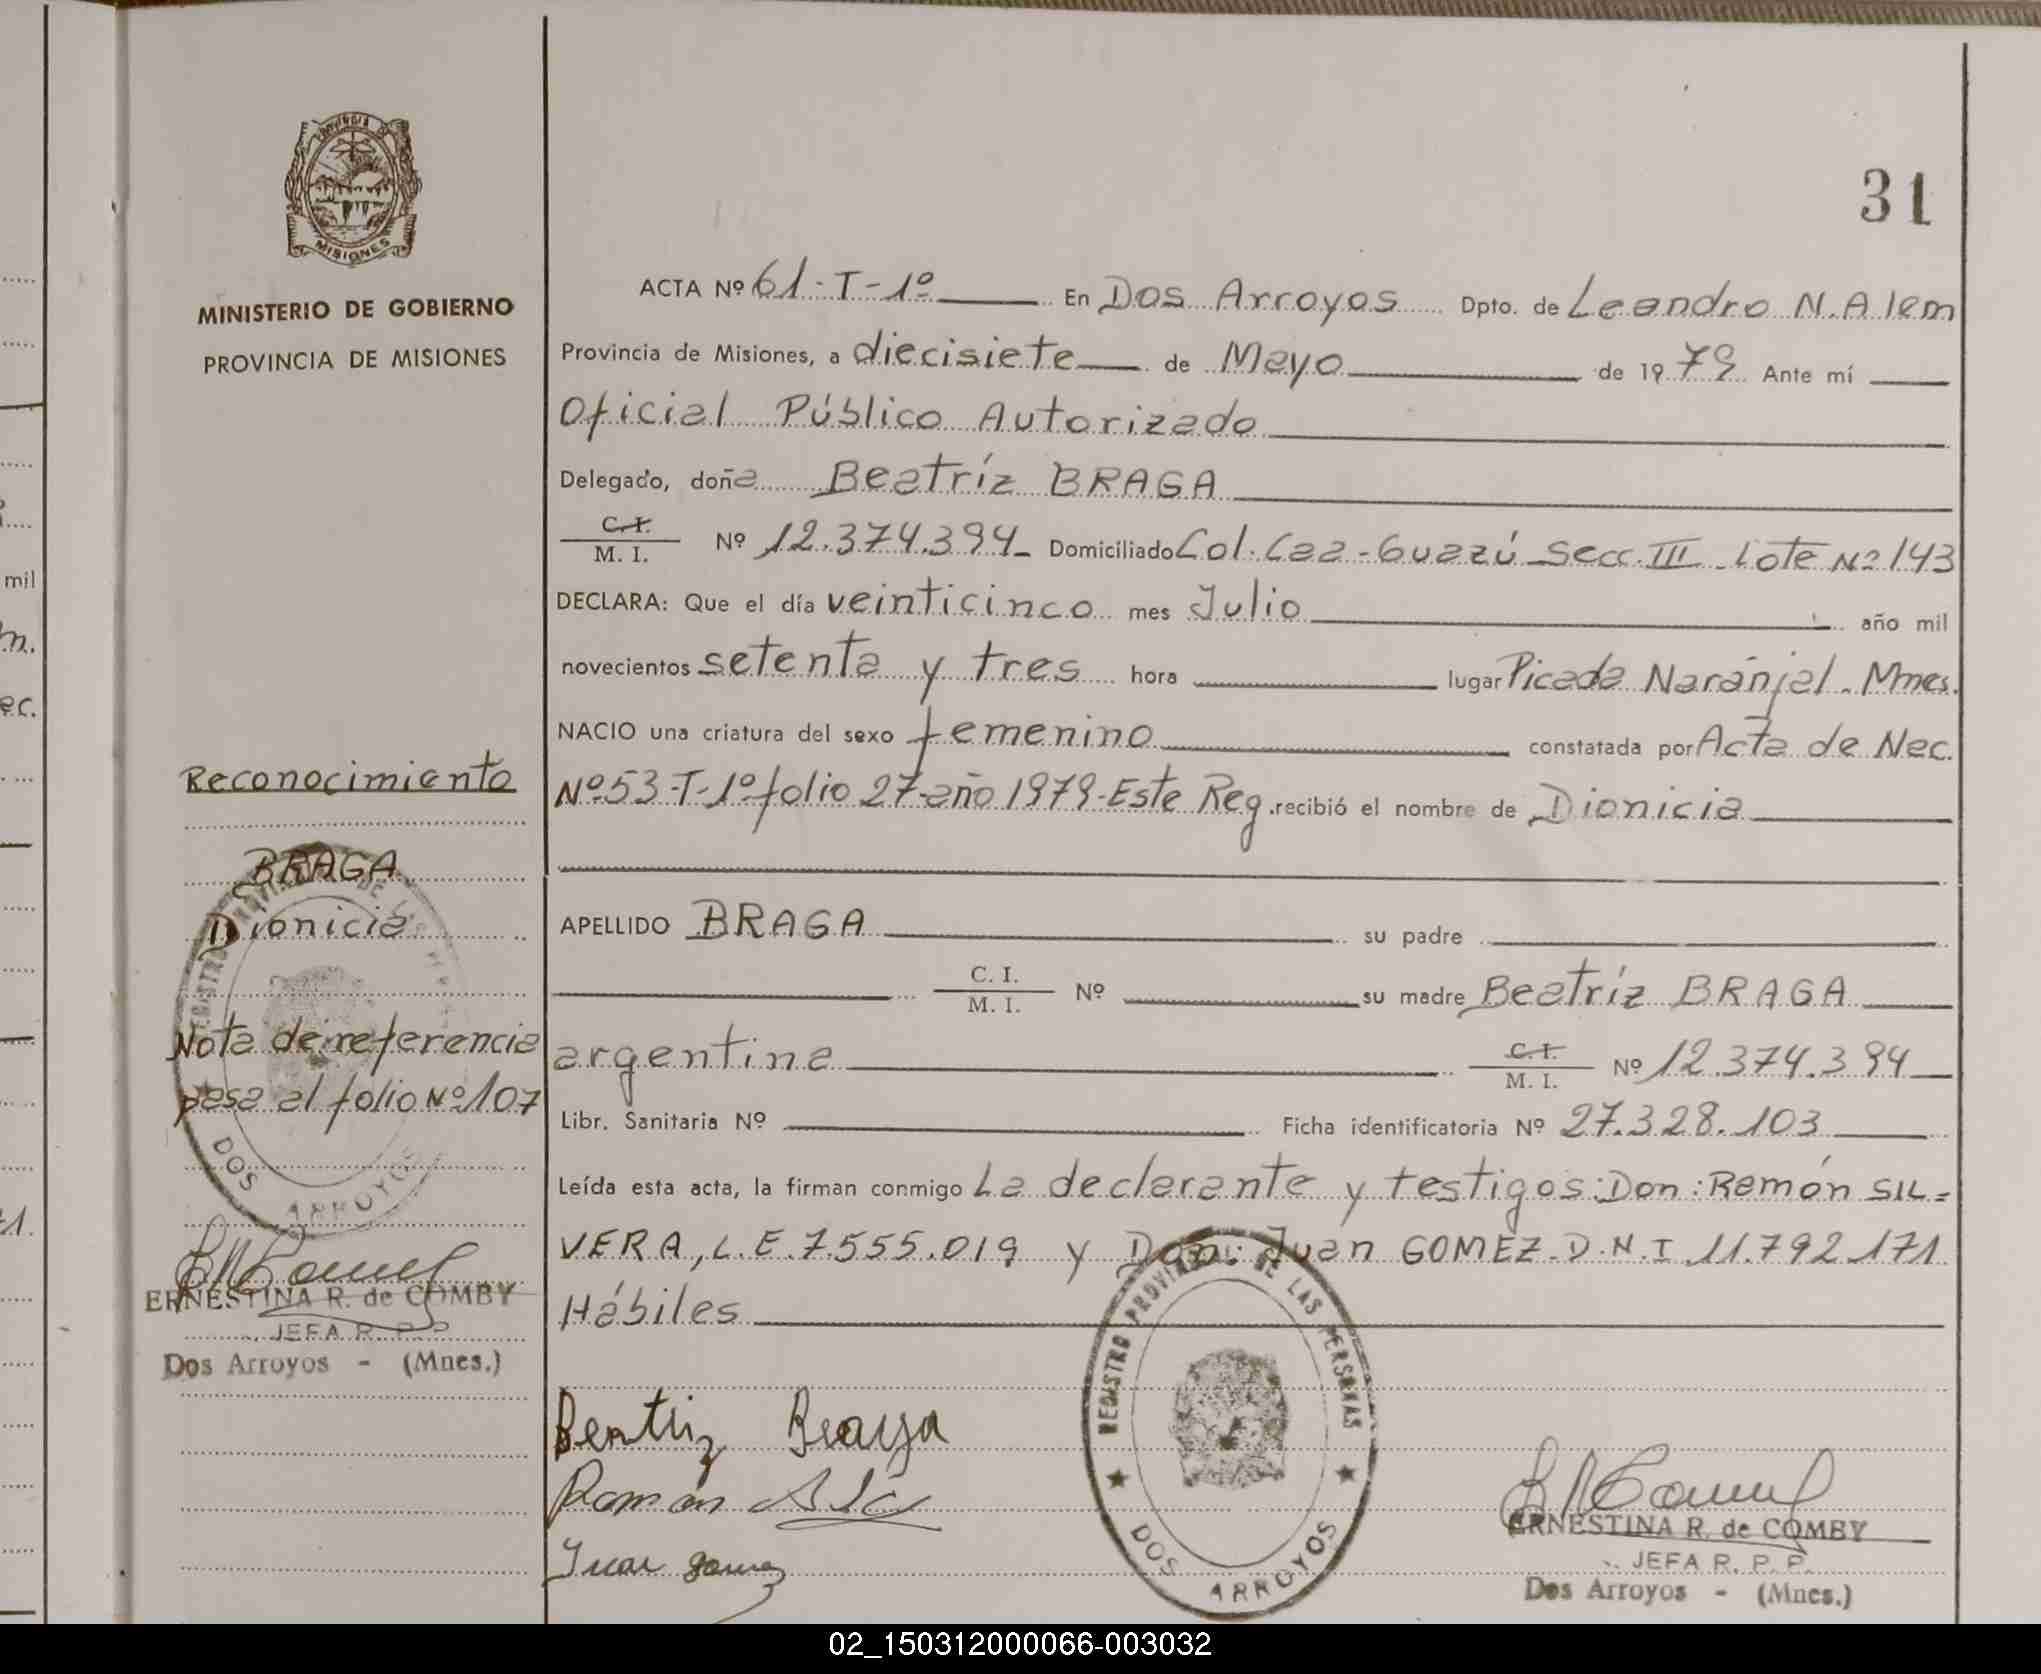 31
PROVINCIA DE
MISIONES
MINISTERIO DE GOBIERNO
PROVINCIA DE MISIONES
ACTA Nº 61-T-1º En Dos Arroyos Dpto. de Leandro N. Alem
Provincia de Misiones, a diecisiete de Mayo de 1979 Ante mí
Oficial Público Autorizado
Delegado, doña Beatríz BRAGA
C. I.
M. I. Nº 12.374.394 Domiciliado Col. Caa-Guazú Secc. III Lote Nº 143
DECLARA: Que el día veinticinco mes Julio año mil
novecientos setenta y tres hora lugar Picada Naranjal. Mnes.
NACIO una criatura del sexo femenino constatada por Acta de Nac.
Nº 53-T-1º folio 27-año 1979-Este Reg. recibió el nombre de Dionicia
APELLIDO BRAGA su padre
C. I.
M. I. Nº su madre Beatríz BRAGA
argentina C. I.
M. I. Nº 12.374.394
Libr. Sanitaria Nº Ficha identificatoria Nº 27.328.103
Leída esta acta, la firman conmigo La declarante y testigos: Don: Ramón SIL=
VERA, L.E. 7.555.019 y Don: Juan GOMEZ-D.N.I. 11.792.171
Hábiles
Beatriz Braga
Ramón
Juan gomez
REGISTRO PROVINCIAL DE LAS PERSONAS
DOS ARROYOS
ERNESTINA R. de COMBY
JEFA R. P. P.
Dos Arroyos - (Mnes.)
Reconocimiento
BRAGA
Dionicia
Nota de referencia
pasa al folio Nº 107
REGISTRO PROVINCIAL DE LAS PERSONAS
DOS ARROYOS
ERNESTINA R. de COMBY
JEFA R. P. P.
Dos Arroyos - (Mnes.)
mil
m.
ec.
1.
02_150312000066-003032